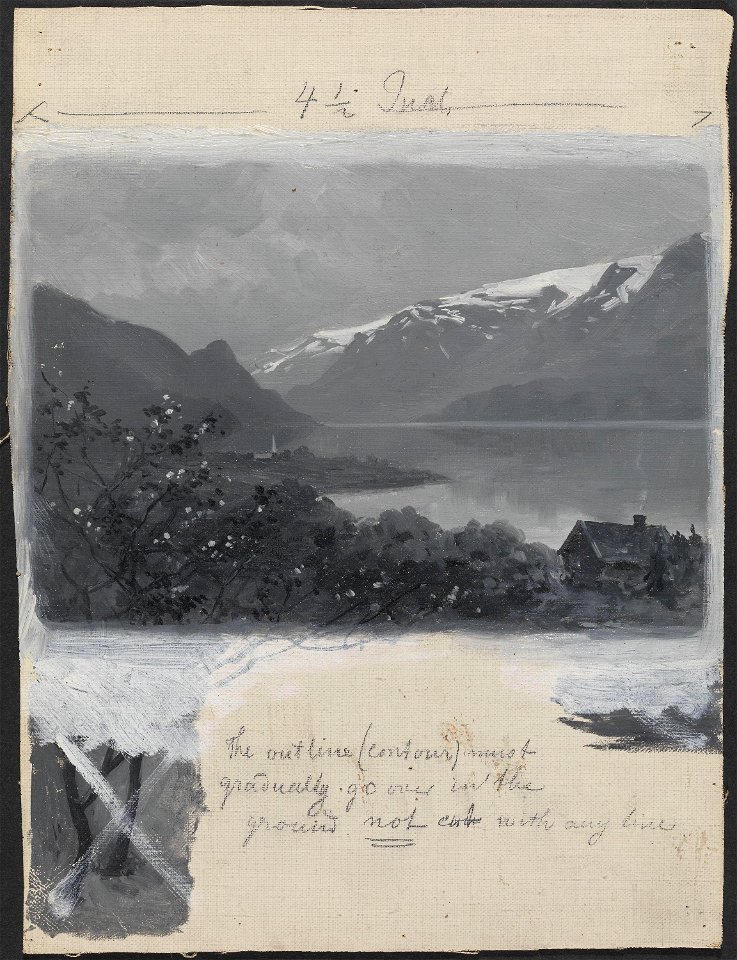 4 ½
The outline (contour) must
gradually go over in the
ground not cut with any line